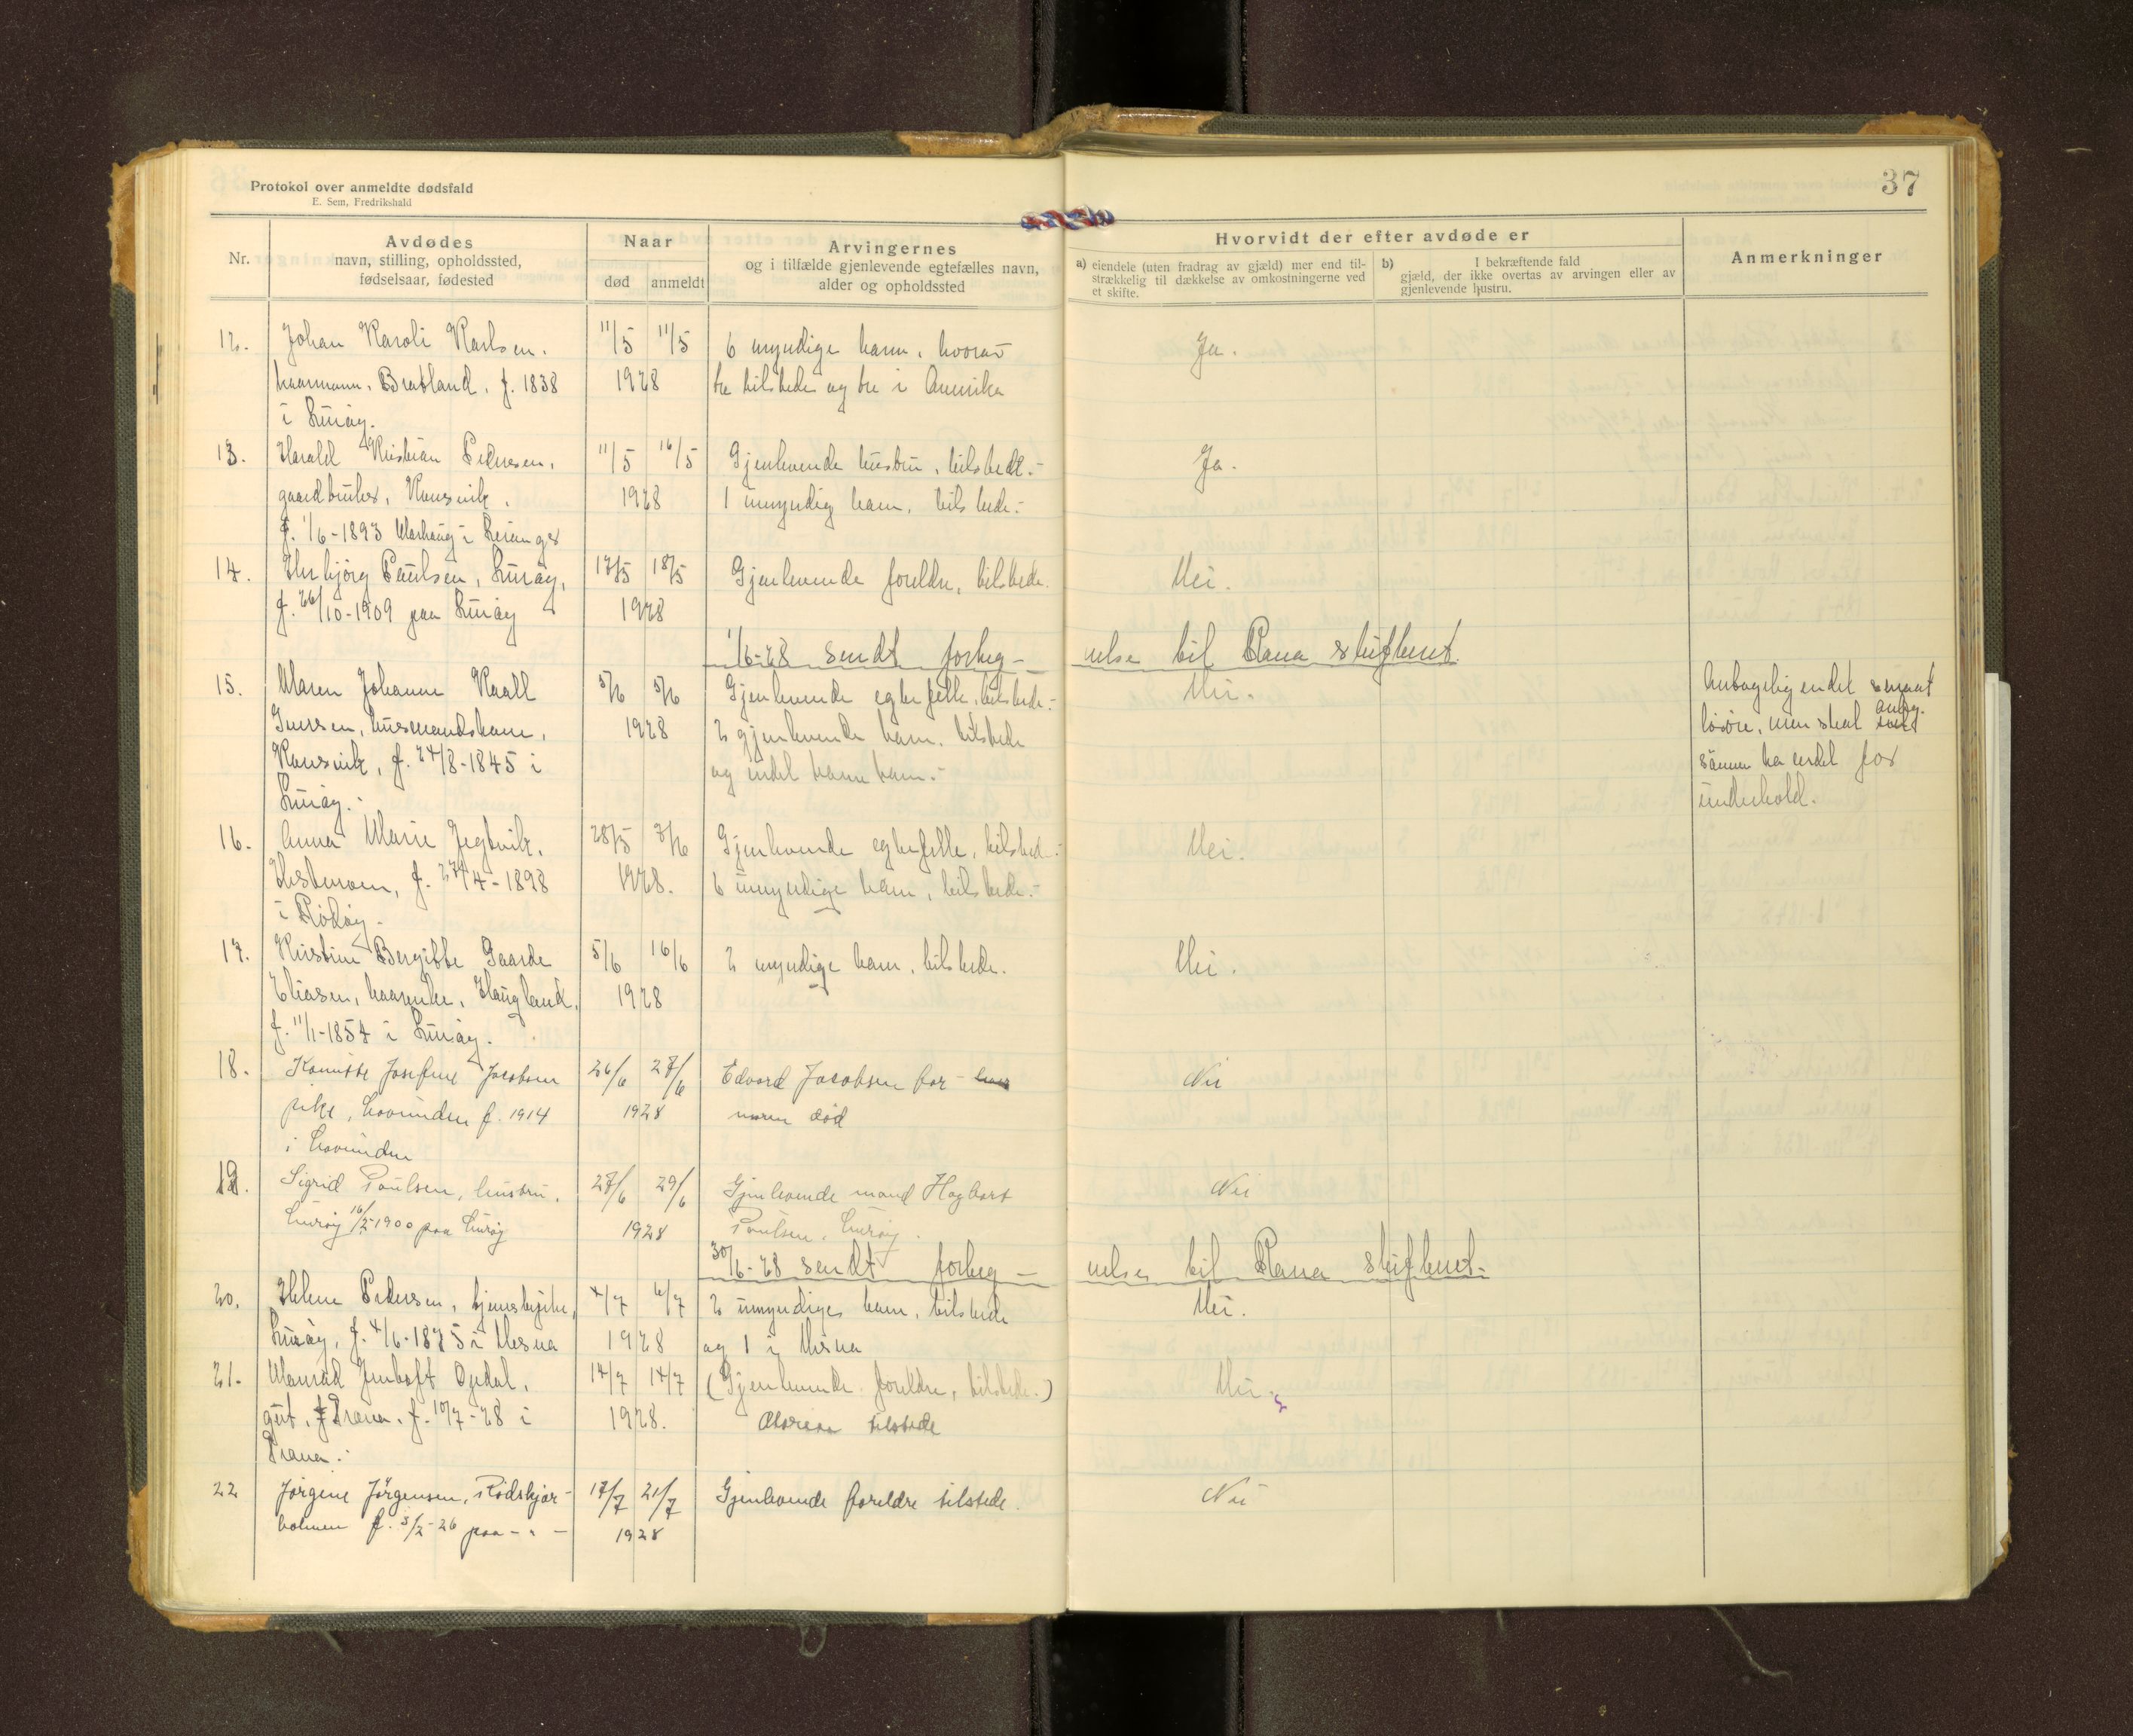 Protokol over anmeldte dødsfald
E. Sem, Fredrikshald
37
Nr.
Avdødes
navn, stilling, opholdssted,
fødselsaar, fødested
Naar
død
anmeldt
Arvingernes
og i tilfælde gjenlevende egtefælles navn,
alder og opholdssted
Hvorvidt der efter avdøde er
a) eiendele (uten fradrag av gjæld) mer end til-
strækkelig til dækkelse av omkostningerne ved
et skifte.
b) I bekræftende fald
gjæld, der ikke overtas av arvingen eller av
gjenlevende hustru.
Anmerkninger
12. Johan Karoli Karlsen, 11/5 11/5 6 myndige barn, hvorav Ja.
kaarmann, Bratland, f. 1838 1928 tre tilstede og tre i Amerika
i Lurøy.
13. Harald Kristian Pedersen, 11/5 16/5 Gjenlevende hustru, tilstede.- Ja.
gaardbruker, Konsvik, 1928 1 umyndig barn, tilstede.-
f. 1/6-1893 i Leiranger
14. Herbjørg Paulsen, Lurøy, 17/5 18/5 Gjenlevende foreldre, tilstede. Nei.
f. 26/10-1909 paa Lurøy 1928
1/6-28 sendt forteg- nelse til Rana skifteret.
15. Maren Johanna Kaall 5/6 5/6 Gjenlevende egtefelle, tilstede.- Nei. Antagelig endel smaat
Iversen, husmandskone, 1928 2 gjenlevende barn, tilstede løsøre, men skal andg.
Konsvik, f. 24/8-1845 i og endel barnebarn.- sønnen ha endel for
Lurøy.- underhold.
16. Anna Marie Jegtvik, 28/5 7/6 Gjenlevende egtefelle, tilstede.- Nei.
Hestmoen, f. 27/4-1898 1928. 6 umyndige barn, tilstede.-
i Rødøy.
17. Kristine Bergitte Gaarde 5/6 16/6 2 myndige barn, tilstede. Nei.
Eliasen, kaarenke, Haugland, 1928
f. 11/1-1854 i Lurøy.
18. Josefine Jacobsen 26/6 27/6 Edvard Jacobsen far - Nei
pike, Lovunden f. 1914 1928 moren død
i Lovunden
19. Sigrid Poulsen, hustru, 27/6 29/6 Gjenlevende mand Hagbart Nei
Lurøy 16/2-1900 paa Lurøy 1928 Poulsen, Lurøy.
30/6-28 sendt forteg- nelse til Rana skifteret.-
20. Helene Pedersen, tjenstpike, 4/7 6/7 2 umyndige barn, tilstede Nei.
Lurøy, f. 4/6-1875 i Nesna 1928 og 1 i Nesna
21. Ingbaft Opdal, 14/7 14/7 (Gjenlevende foreldre, tilstede.) Nei.
gut, Træna, f. 10/7-28 i 1928. Moren tilstede
Træna.-
22 Jørgine Jörgensen, Rødskjær- 17/7 21/7 Gjenlevende foreldre tilstede. Nei
holmen f. 3/2-26 paa - " - 1928